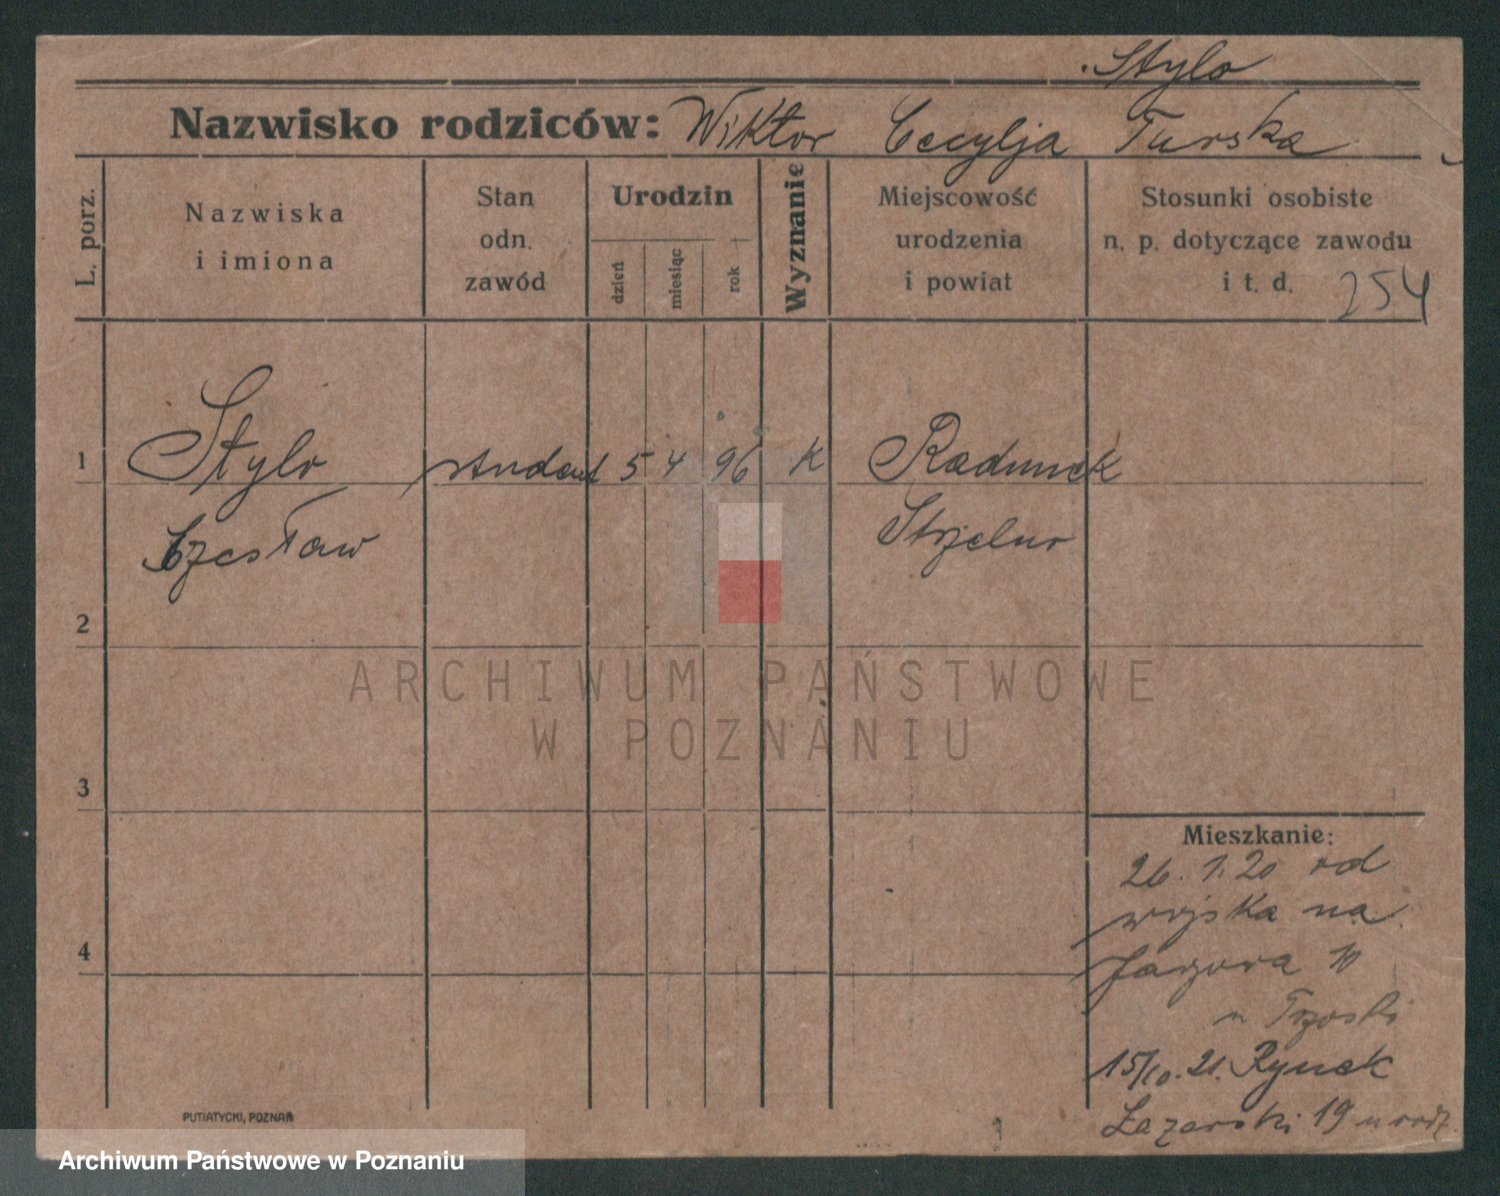 Stylo
Nazwisko rodziców: Wiktor Cecylja Turska
L. porz.
Nazwiska
i imiona
Stan
odn.
zawód
Urodzin
dzień
miesiąc
rok
Wyznanie
Miejscowość
urodzenia
i powiat
Stosunki osobiste
n. p. dotyczące zawodu
i t. d. 254
1 Stylo student 5 4 96 K Radunek
Czesław Strzelno
2
ARCHIWUM PAŃSTWOWE
W POZNANIU
3
Mieszkanie:
26. 1. 20 od
wojska na
4
u Trzoski
15/10. 21. Rynek
Łazarski 19 u rodz.
PUTIATYCKI, POZNAŃ
Archiwum Państwowe w Poznaniu